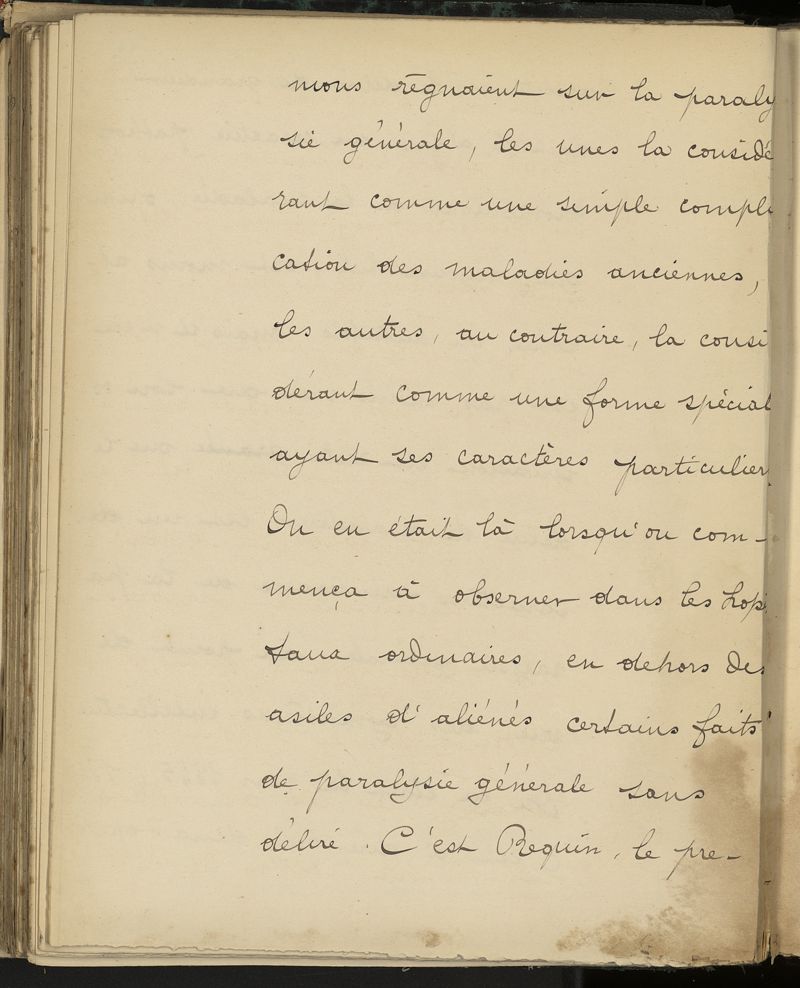 nions régnaient sur la paraly
sie générale, les unes la considé
rant comme une simple compli
cation des maladies anciennes,
les autres, au contraire, la consi
dérant comme une forme spécial
ayant ses caractères particulier
On en était là lorsqu'on com-
mença à observer dans les hopi
taux ordinaires, en dehors des
asiles d'aliénés certains faits
de paralysie générale sans
délire. C'est Requin, le pre-